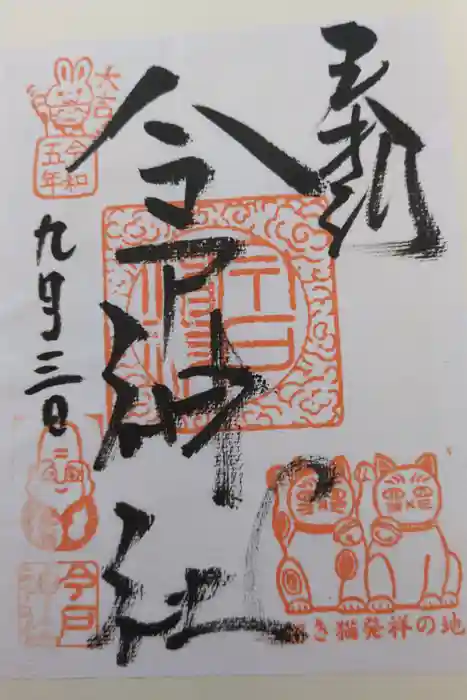 奉拝
今戸神社
大吉
令和
五年
九月三日
今戸
神社
き猫発祥の地